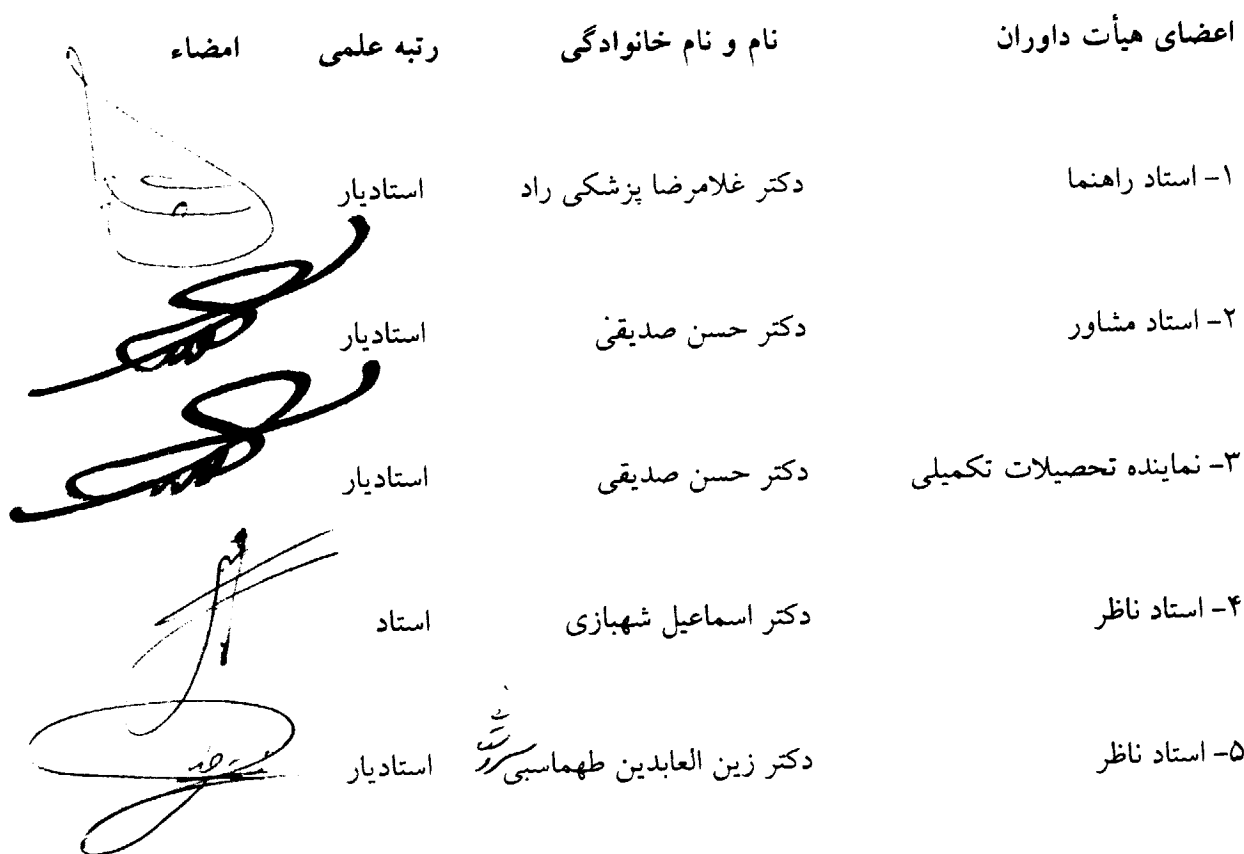 اعضای هیأت داوران نام و نام خانوادگی رتبه علمی امضاء
۱- استاد راهنما دکتر غلامرضا پزشکی راد استادیار
۲- استاد مشاور دکتر حسن صدیقی استادیار
۳- نماینده تحصیلات تکمیلی دکتر حسن صدیقی استادیار
۴- استاد ناظر دکتر اسماعیل شهبازی استاد
۵- استاد ناظر دکتر زین العابدین طهماسبی استادیار